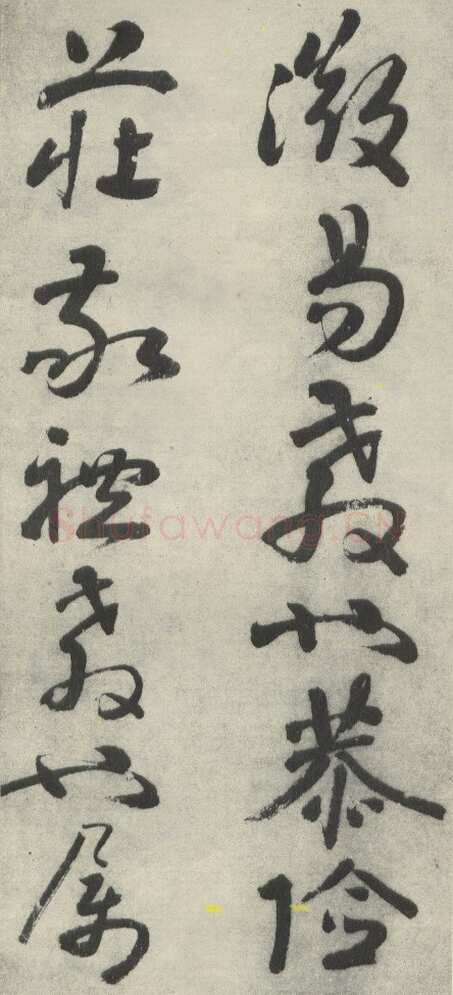 微易教也恭儉
莊敬禮教也屬
Shufawang.CN